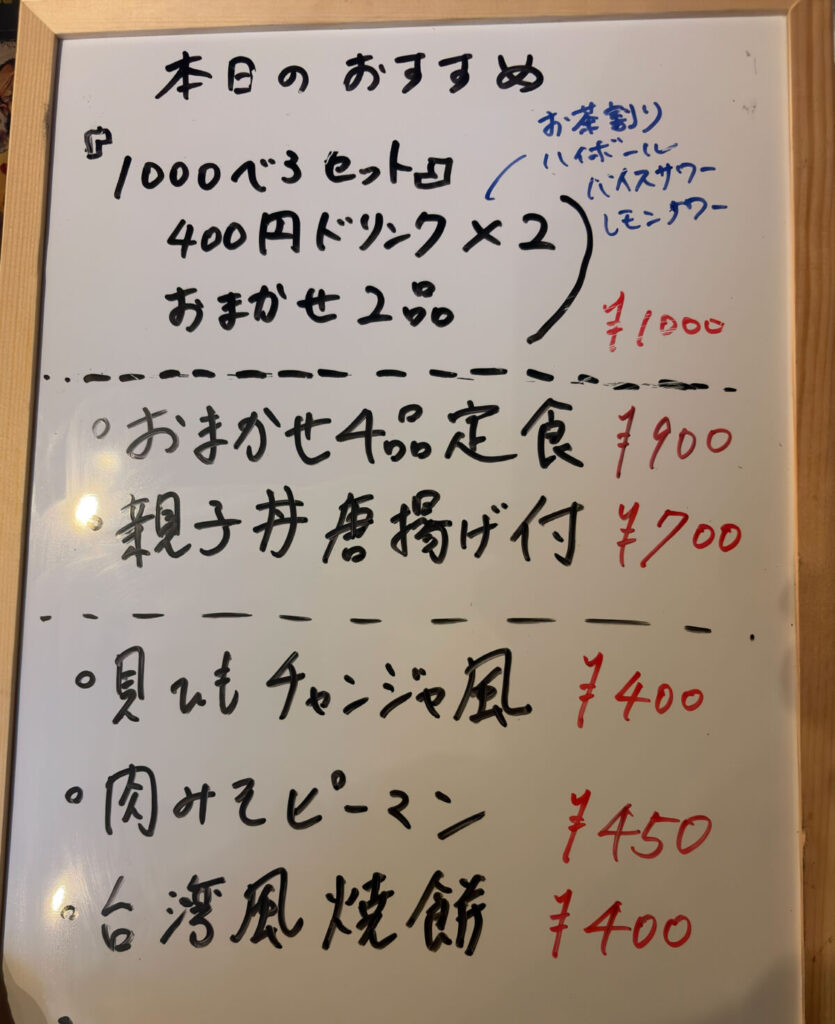 本日のおすすめ
『1000べろセット』
お茶割り
ハイボール
バイスサワー
レモンサワー
400円ドリンク×2
おまかせ2品
¥1000
おまかせ4品定食 ¥900
親子丼唐揚げ付 ¥700
貝ひもチャンジャ風 ¥400
肉みそピーマン ¥450
台湾風焼餅 ¥400